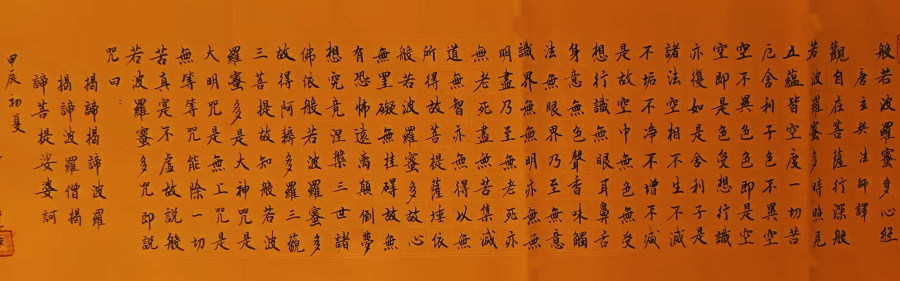 般若波羅蜜多心經
唐玄奘法師譯
觀自在菩薩行深般
若波羅蜜多時照見
五蘊皆空度一切苦
厄舍利子色不異空
空不異色色即是空
空即是色受想行識
亦復如是舍利子是
諸法空相不生不滅
不垢不净不增不減
是故空中無色無受
想行識無眼耳鼻舌
身意無色聲香味觸
法無眼界乃至無意
識界無無明亦無無
明盡乃至無老死亦
無老死盡無苦集滅
道無智亦無得以無
所得故菩提薩埵依
般若波羅蜜多故心
無罣礙無挂礙故無
有恐怖遠離顛倒夢
想究竟涅槃三世諸
佛依般若波羅蜜多
故得阿耨多羅三藐
三菩提故知般若波
羅蜜多是大神咒是
大明咒是無上咒是
無等等咒能除一切
苦真實不虛故說般
若波羅蜜多咒即說
咒曰
揭諦揭諦波羅
揭諦波羅僧揭
諦菩提娑婆訶
甲辰初夏